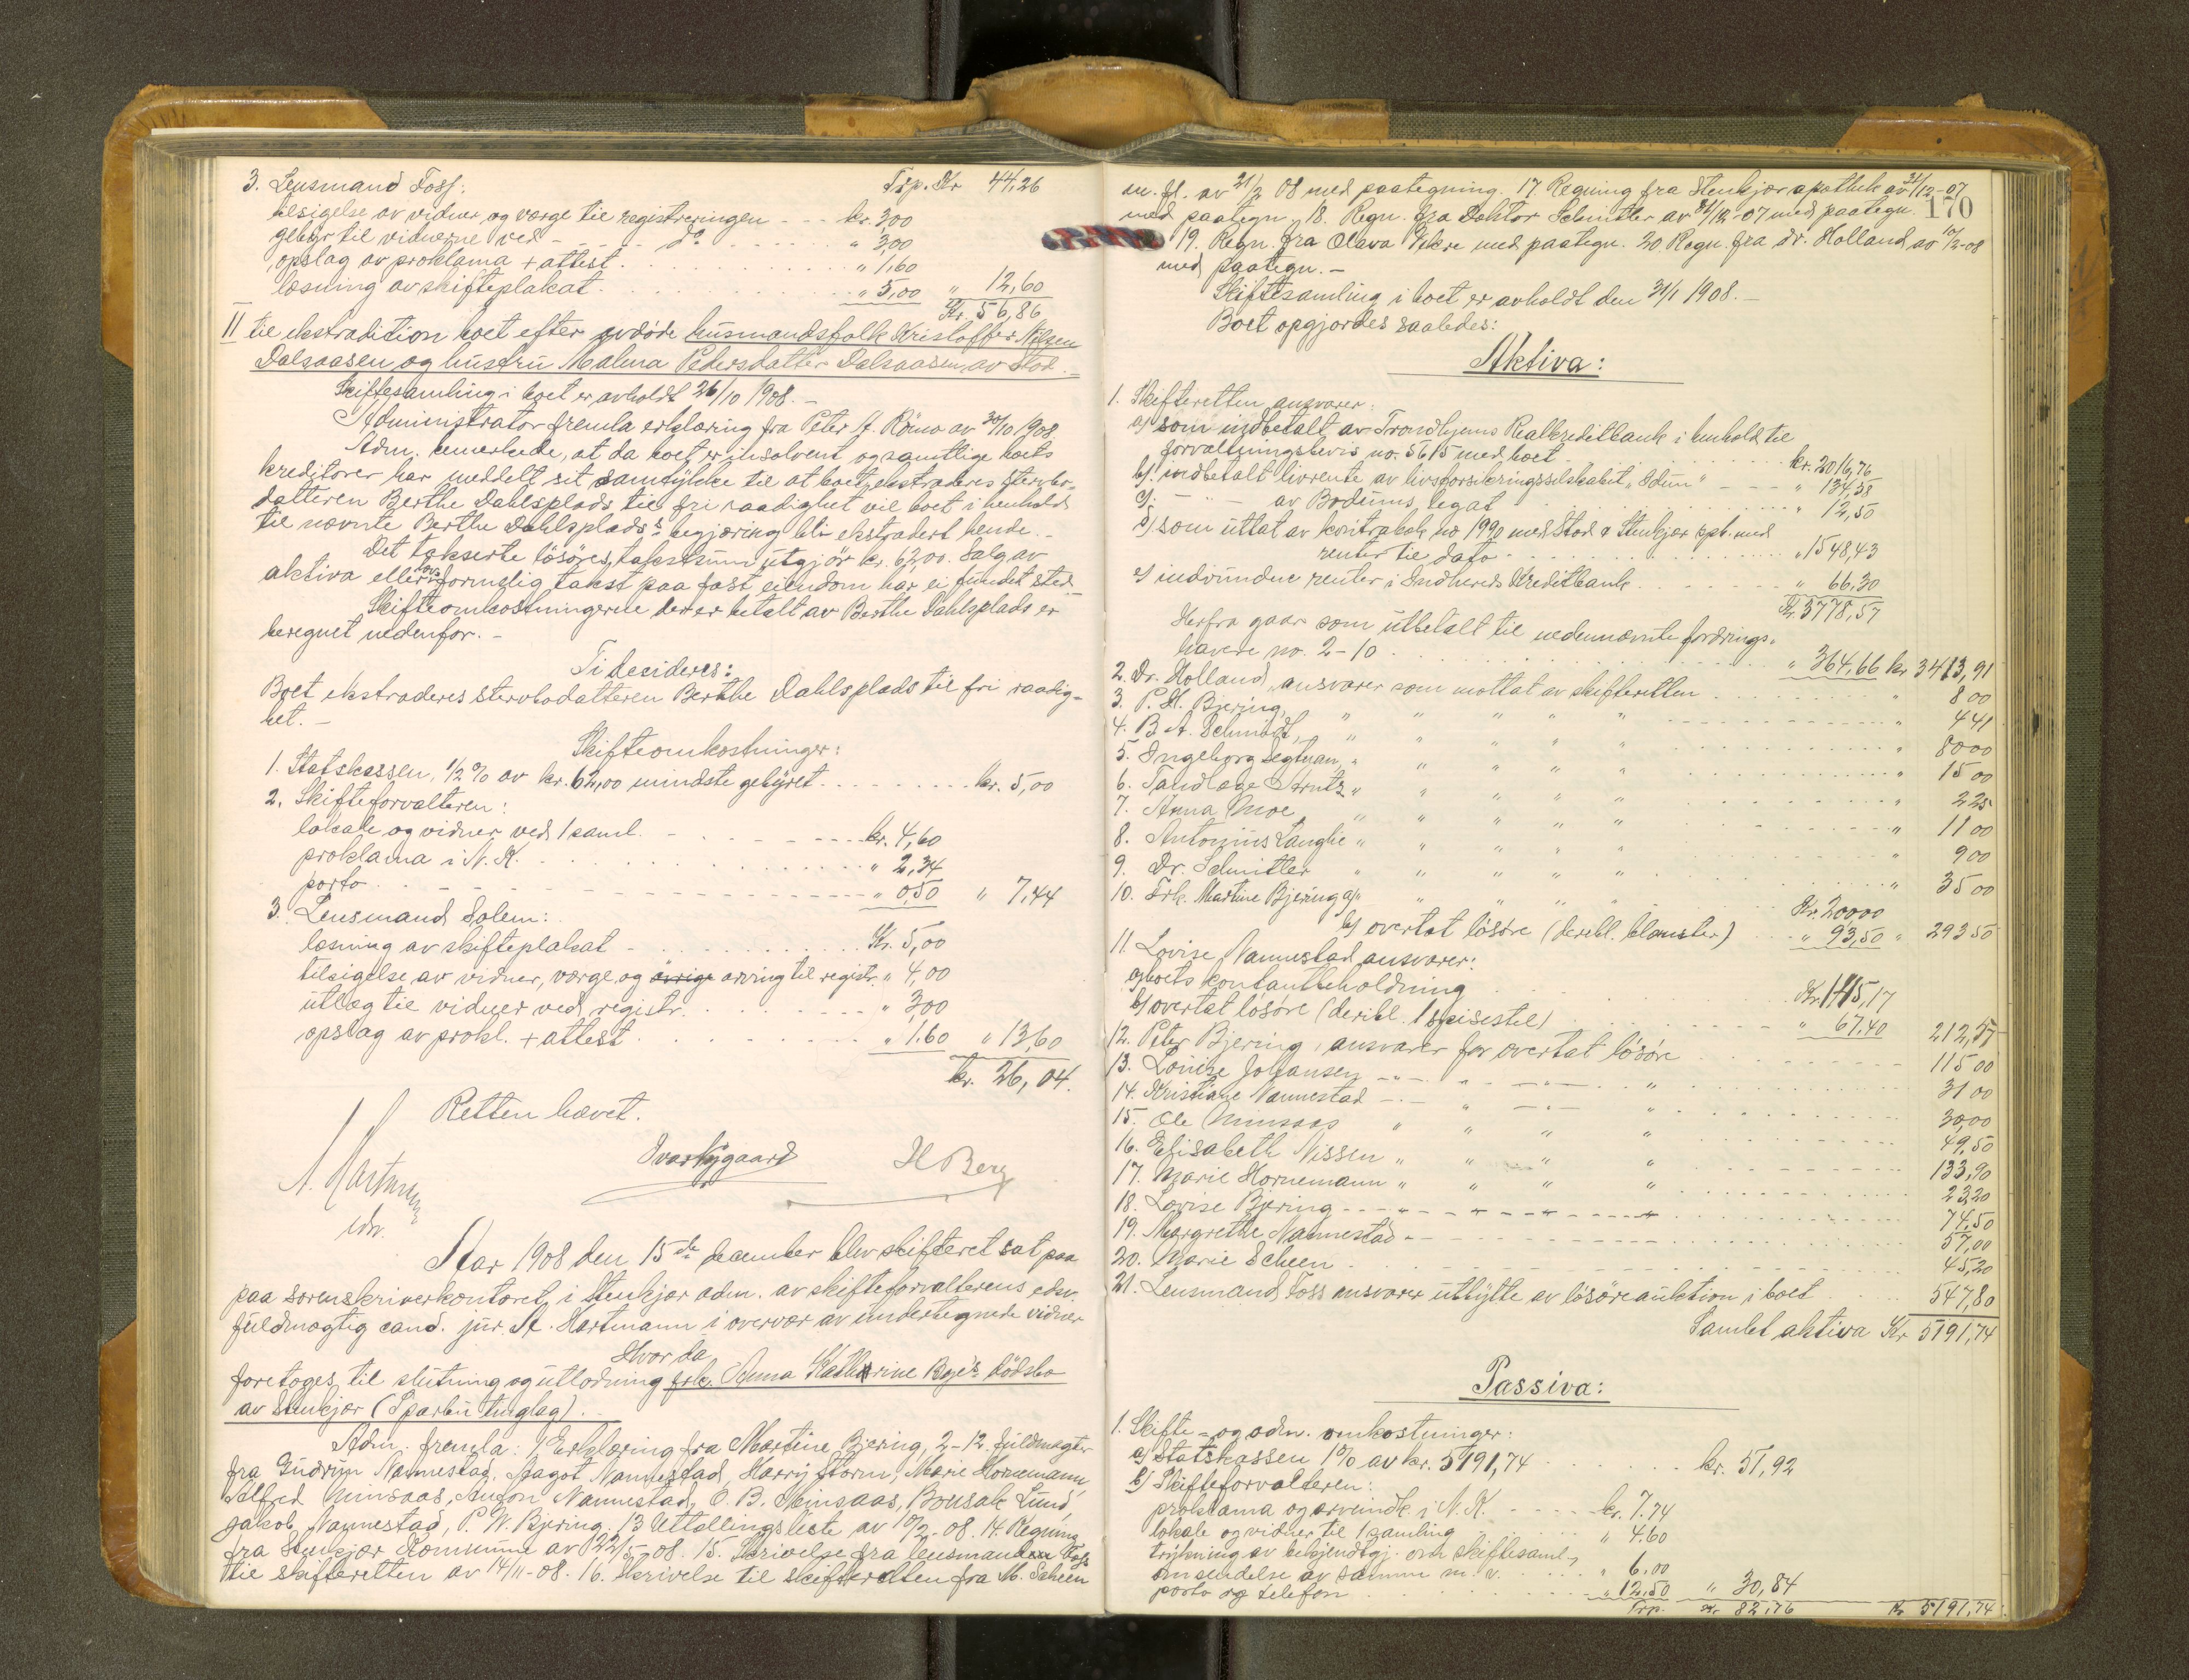 3. Lensmand Foss: Trp. Kr 44,26
tilsigelse av vidner og værge til registreringen - - - kr. 3,00
gebyr til vidnerne ved - - - - - do " 3,00
opslag av proklama + attest " 1,60
læsning av skifteplakat " 5,00 " 12,60
Kr. 56,86
II til ekstradition boet efter avdøde husmandsfolk Kristoffer Nilsen
Dalsaasen og hustru Malena Pedersdatter Dalsaasen av Stod.
Skiftesamling i boet er avholdt 26/10 1908. -
Administrator fremla erklæring fra Peter A. Römo av 30/10 1908
Adm. bemerkede, at da boet er insolvent og samtlige boets
kreditorer har meddelt sit samtykke til at boet ekstraderes stervbo-
datteren Berthe Dahlsplads til fri raadighet vil boet i henhold
til nævnte Berthe Dahlsplads's begjæring bli ekstradert hende. -
Det takserte lösöres takstsum utgjör kr. 62,00. Salg av
aktiva eller avg formelig takst paa fast eiendom har ei fundet sted. -
Skifteomkostningerne der er betalt av Berthe Dahlsplads er
beregnet nedenfor. -
Ti decideres:
Boet ekstraderes stervbodatteren Berthe Dahlsplads til fri raadig-
het. -
Skifteomkostninger:
1. Statskassen, 1/2 % av kr. 62,00 mindste gebyret kr. 5,00
2. Skifteforvalteren:
lokale og vidner ved 1 saml. kr. 4,60
proklama i N. K. " 2,34
porto " 0,50 " 7,44
3. Lensmand Solem:
læsning av skifteplakat Kr. 5,00
tilsigelse av vidner, værge og övrige arving til registr. " 4,00
utlæg til vidner ved registr. " 3,00
opslag av prokl. + attest " 1.60 " 13,60
kr. 26,04.
Retten hævet.
A. Hartmann Ivar Nygaard H Berg
edv.
Aar 1908 den 15de december blev skifteret sat paa
paa sorenskriverkontoret i Stenkjær adm. av skifteforvalterens edsv.
fuldmægtig cand. jur. A. Hartmann i overvær av undertegnede vidner
Hvor da
foretoges, til slutning og utlodning frk. Anna Kathrine Bye's dödsbo
av Stenkjær (Sparbu tinglag). -
Adm. fremla: 1 Erklæring fra Martine Bjering, 2-12. fuldmagter
fra Gudrun Nannestad, Aagot Nannestad, Harry Storm, Marie Hornemann,
Alfred Minsaas, Anton Nannestad, O. B. Minsaas, Bonsak Lund,
Jakob Nannestad, P. W. Bjering. 13 Uttellingsliste av 10/2-08. 14. Regning
fra Stenkjær Kommune av 22/5-08. 15. Skrivelse fra lensmand Foss
til skifteretten av 14/11-08. 16. Skrivelse til skifteretten fra M. Scheen
170
m. fl. av 21/2 08 med paategning. 17. Regning fra Stenkjær apothek av 31/12-07
med paategn. 18. Regn. fra Doktor Schmitler av 31/12-07 med paategn.
19. Regn. fra Olava Vekre med paategn. 20. Regn. fra dr. Holland av 10/2-08
med paategn. -
Skiftesamling i boet er avholdt den 31/1 1908. -
Boet opgjordes saaledes:
Aktiva:
1. Skifteretten ansvarer:
a) som indbetalt av Trondhjems Realkreditbank i henhold til
forvaltningsbevis no. 5615 med boet kr. 2016,76
b) indbetalt livrente av livsforsikringsselskabet "Idun" " 134,58
c) - " - av Bodums legat " 12,50
d) som uttat av kontrabok no 1990 med Stod & Stenkjær spb. med
renter til dato " 1548,43
e) indvundne renter i Indherreds Kreditbank " 66,30
Kr. 3778,57
Herfra gaar som utbetalt til nedennævnte fordrings-
havere no. 2-10 " 364,66 kr 3413,91
2. Dr. Holland, ansvarer som mottat av skifteretten " 8 00
3. P. H. Bjering, " " " " " " 4 41
4. B. A. Schmidt, " " " " " " 80 00
5. Ingeborg Segtnan, " " " " " " 15 00
6. Tandlæge Arntz " " " " " " 2 25
7. Anna Moe " " " " " " 11 00
8. Antonius Langhe " " " " " " 9 00
9. Dr. Schmitler " " " " " " 35 00
10. Frk. Martine Bjering a) " " " " " Kr. 200,00
b) overtat lösöre (deribl. blomster) " 93,50 " 293 50
11. Lovise Nannestad ansvarer:
a) boets kontantbeholdning Kr. 145,17
b) overtat lösöre (deribl. 1 spisestel) " 67,40 212,57
12. Peter Bjering, ansvarer for overtat lösöre 115 00
13. Louise Johansen - " - " - " - " 31 00
14. Kristiane Nannestad - " - " - " - " 30,00
15. Ole Minsaas " " " " 49,50
16. Elisabeth Nissen " " " " 133,90
17. Marie Hornemann " " " " 23,20
18. Lovise Bjering - - - " - " - " - - - " 74,50
19. Margrethe Nannestad - - 57,00
20. Marie Scheen 45,20
21. Lensmand Foss ansvarer utbytte av lösöreauktion i boet 547,80
Samlet aktiva Kr 5191,74
Passiva:
1. Skifte- og adm. omkostninger:
a) Statskassen 1% av kr. 5191,74 kr. 51,92
b) Skifteforvalteren:
proklama og arveindk. i N. K. kr. 7.74
lokale og vidner til 1 samling " 4.60
trykning av bekjendtgj. om skiftesaml.,
omsendelse av samme m. v. " 6.00
porto og telefon " 12.50 " 30,84
Trp. Kr 82,76 Kr 5191,74